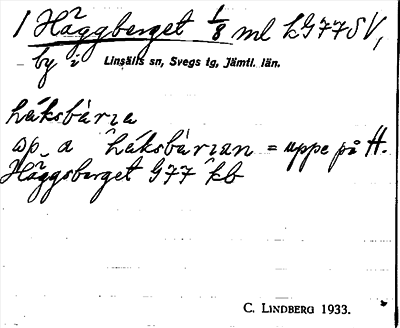 1 Häggberget 1/8 ml k G77SV,
by i Linsälls sn, Svegs tg, Jämtl. län.
háksbàrıa
a háksbàrıan = uppe på H.
Häggsberget G77 kb
C. LINDBERG 1933.